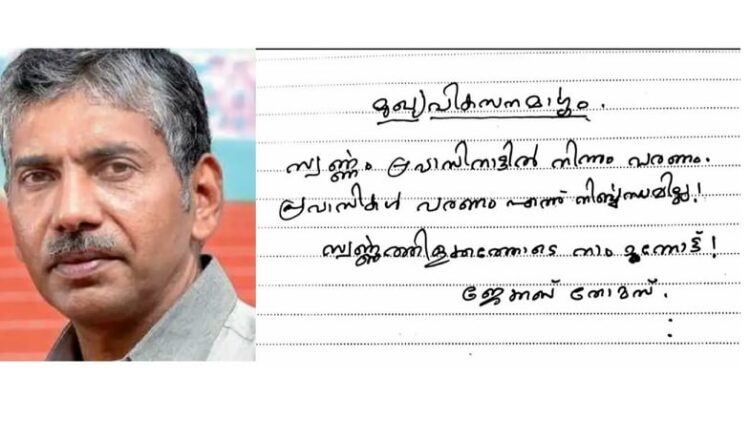 മുഖ്യവികസനമാർഗ്ഗം.
സ്വർണ്ണം പ്രവാസിനാട്ടിൽ നിന്നും വരണം.
പ്രവാസികൾ വരണം എന്ന് നിർബ്ബന്ധമില്ല!
സ്വർണ്ണത്തിളക്കത്തോടെ നാം മുന്നോട്ട്!
ജേക്കബ് തോമസ്.